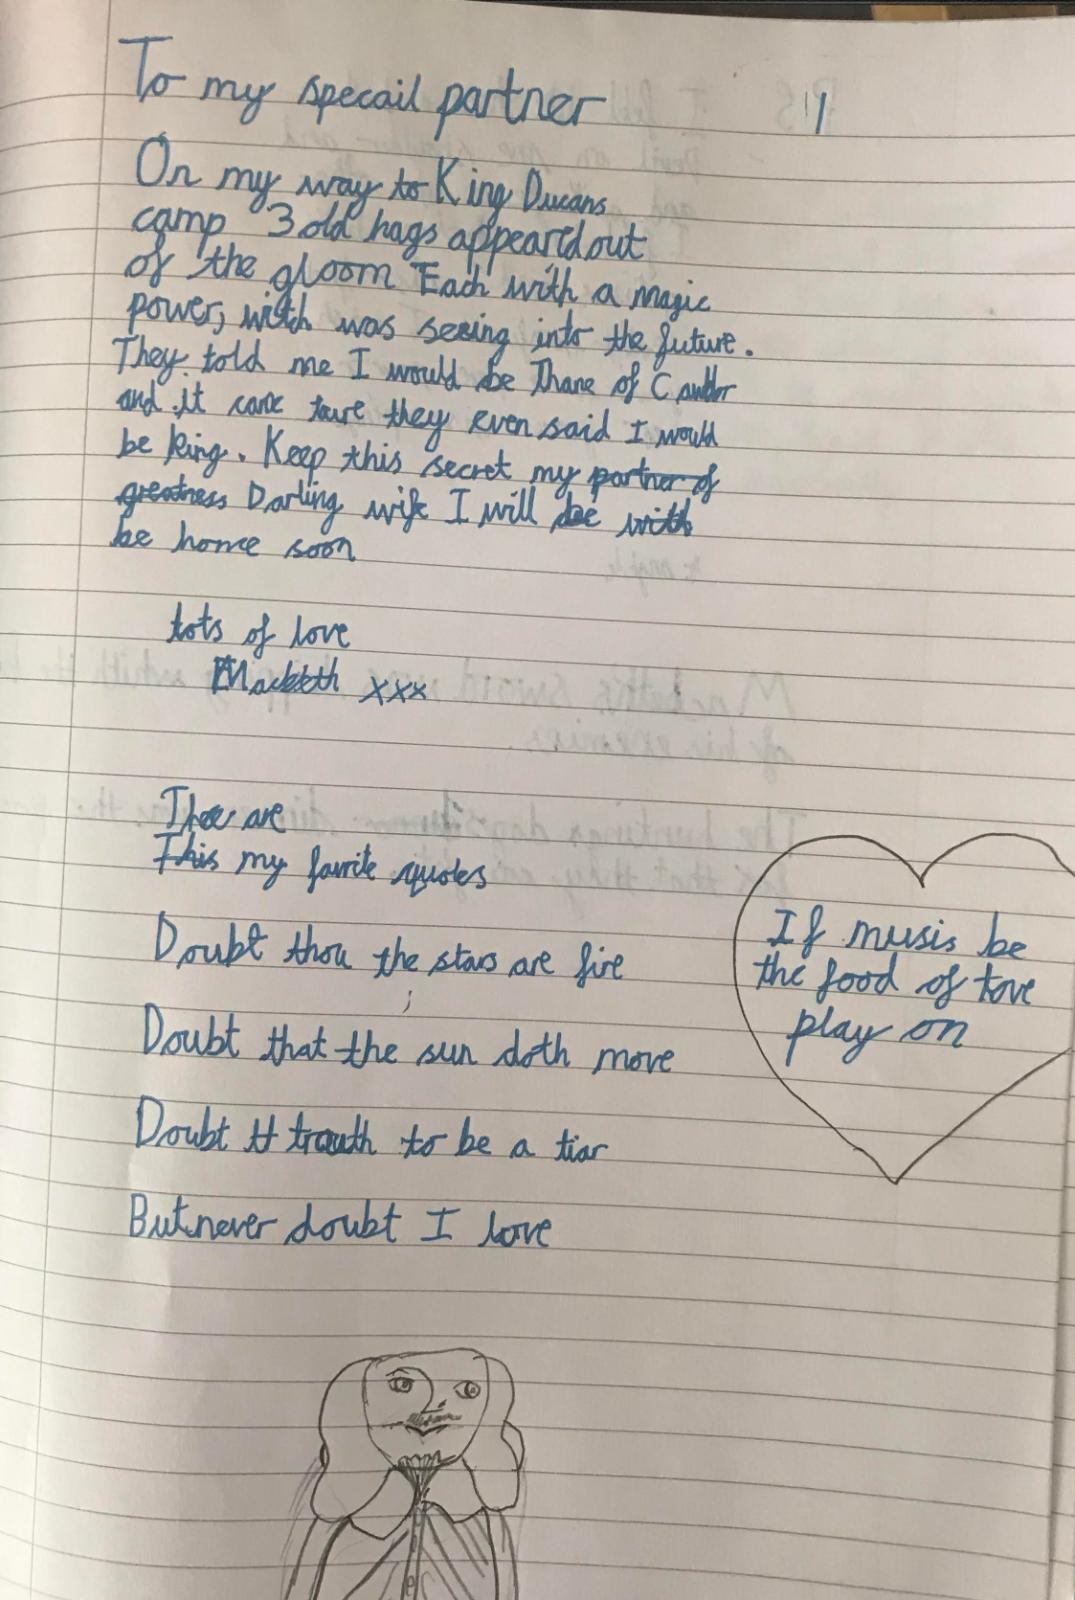 To my specail partner
On my way to King Ducans
camp 3 old hags appeared out
of the gloom Each with a magic
power, witch was seeing into the future.
They told me I would be Thane of Cawdor
and it came ture they even said I would
be king. Keep this secret my partner of
greatness Darling wife I will be with
be home soon
lots of love
Macbeth xxx
These are
This my favrite quotes
Doubt thou the stars are fire
Doubt that the sun doth move
Doubt truth to be a liar
But never doubt I love
If musis be
the food of love
play on